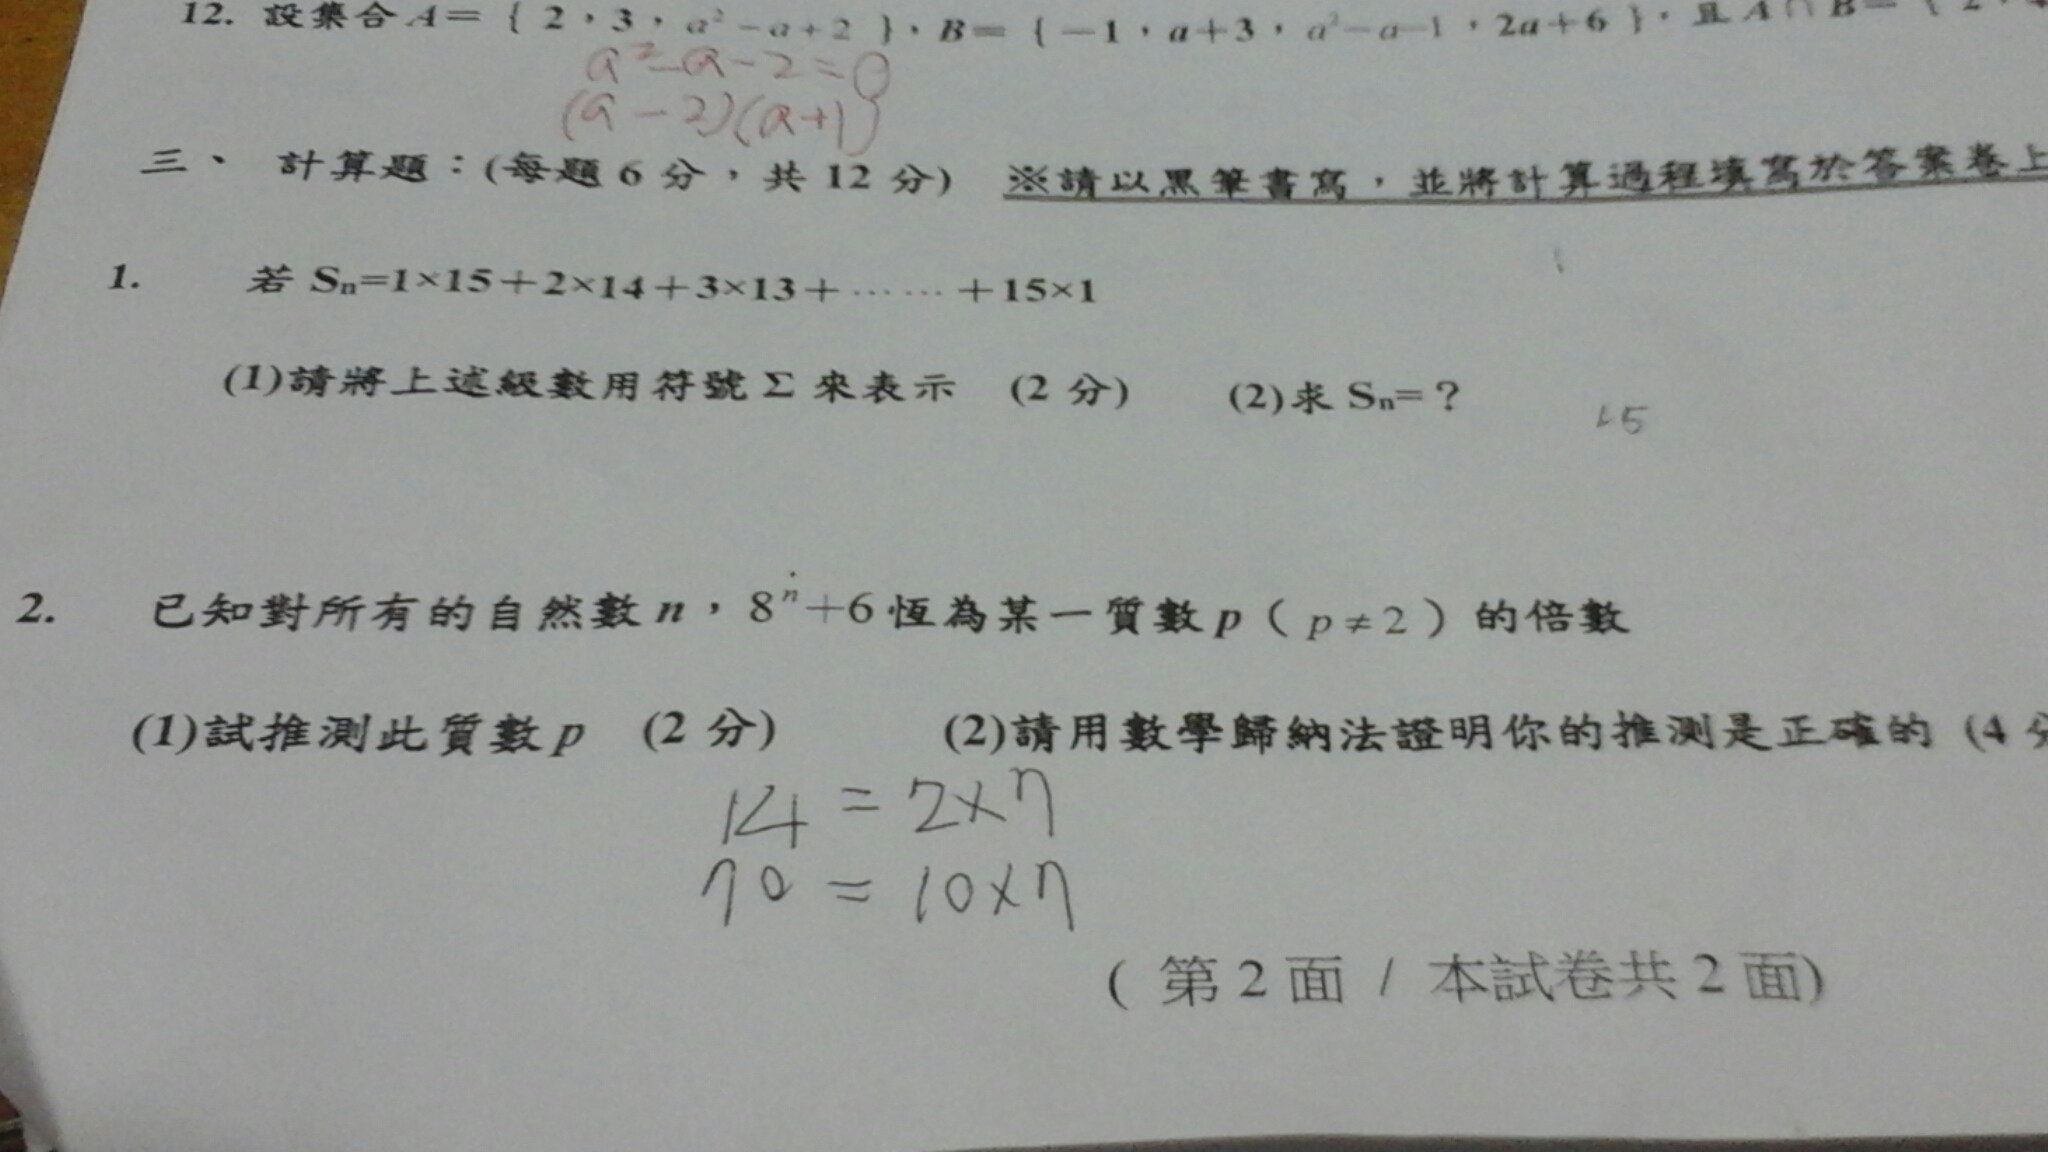 12. 設集合 A={2,3,a²-a+2},B={-1,a+3,a²-a-1,2a+6},且 A∩B={2,
a²-a-2=0
(a-2)(a+1)
三、 計算題:(每題 6 分,共 12 分) ※請以黑筆書寫,並將計算過程填寫於答案卷上
1. 若 Sₙ=1×15+2×14+3×13+⋯⋯+15×1
(1)請將上述級數用符號 Σ 來表示 (2 分) (2)求 Sₙ=?
15
2. 已知對所有的自然數 n,8ⁿ+6 恆為某一質數 p(p≠2)的倍數
(1)試推測此質數 p (2 分) (2)請用數學歸納法證明你的推測是正確的 (4 分
14=2×7
70=10×7
( 第 2 面 / 本試卷共 2 面)